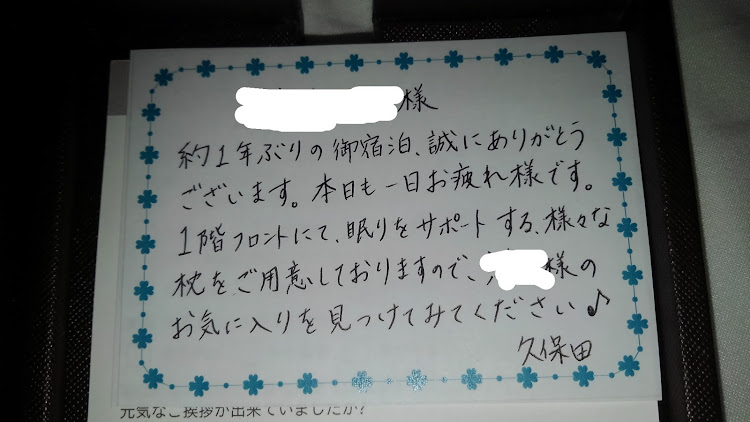 様
約1年ぶりの御宿泊、誠にありがとう
ございます。本日も一日お疲れ様です。
1階フロントにて、眠りをサポートする、様々な
枕をご用意しておりますので、様の
お気に入りを見つけてみてください♪
久保田
元気なご挨拶が出来ていましたか?